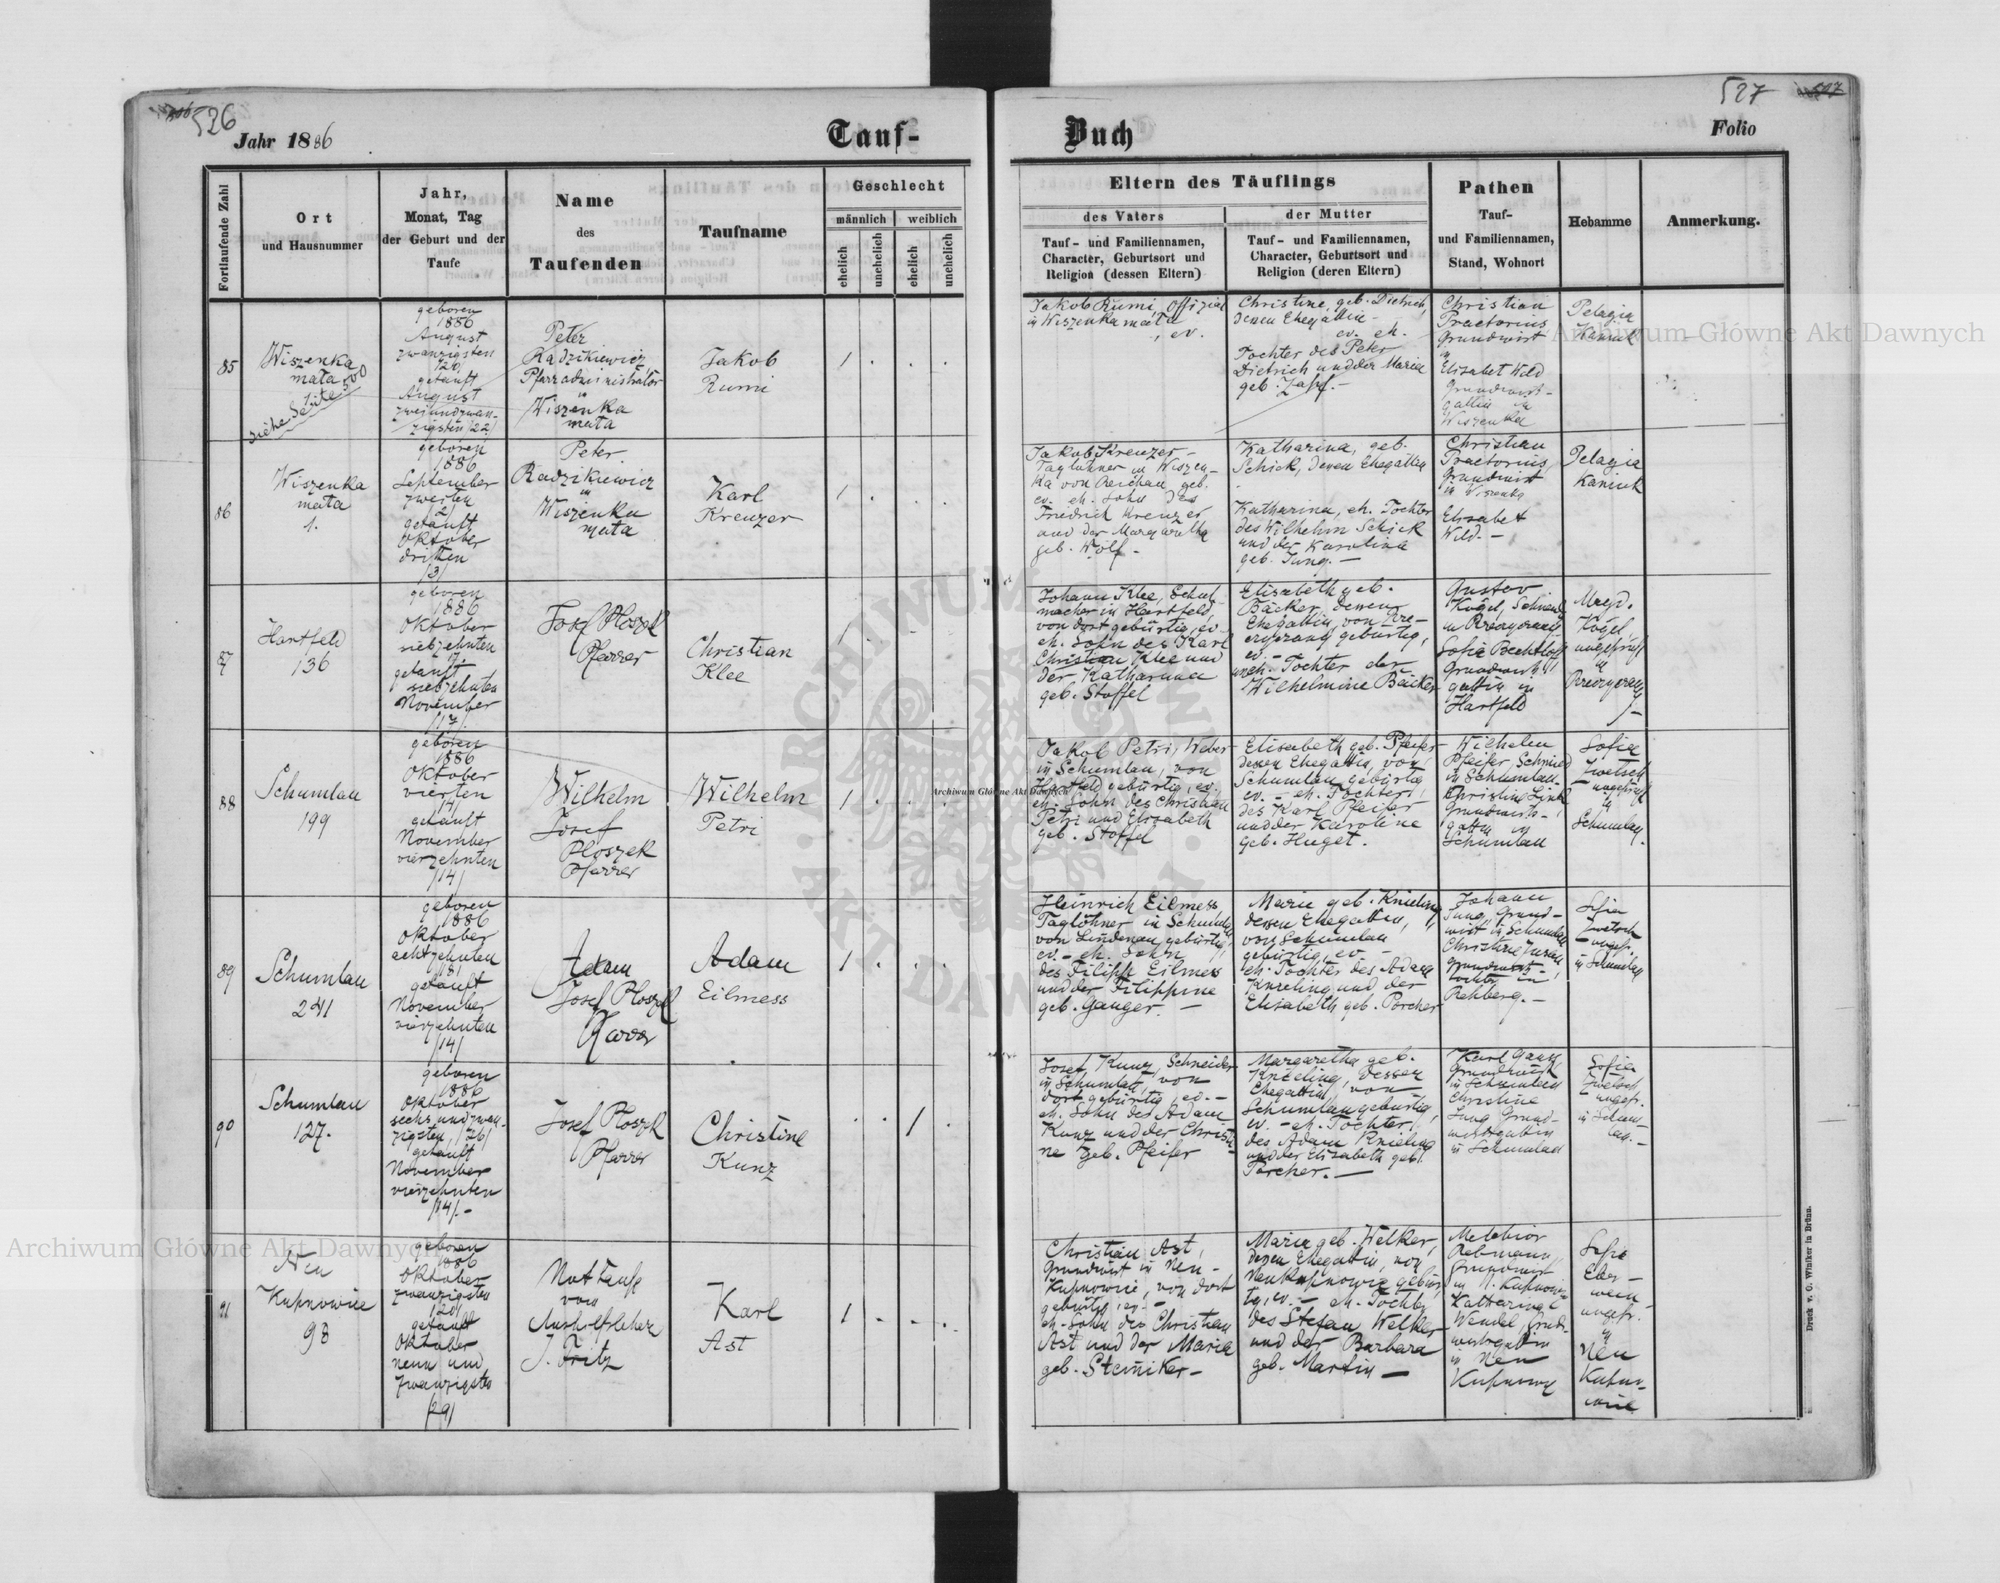 526
Jahr 1886
Tauf-
Fortlaufende Zahl
Ort
und Hausnummer
Jahr,
Monat, Tag
der Geburt und der
Taufe
Name
des
Taufenden
Taufname
Geschlecht
männlich
weiblich
ehelich
unehelich
ehelich
unehelich
85
Wiszenka
mała
siehe Seite 500
geboren
1886
August
zwanzigsten
/20/
getauft
August
zweiundzwan-
zigsten /22/
Peter
Radzikiewicz
Pfarradministrator
in
Wiszenka
mała
Jakob
Rumi
1
86
Wiszenka
mała
1.
geboren
1886
September
zweiten
/2/
getauft
Oktober
dritten
/3/
Peter
Radzikiewicz
in
Wiszenka
mała
Karl
Kreuzer
1
87
Hartfeld
136
geboren
1886
Oktober
siebzehnten
17.
getauft
siebzehnten
November
/17/
Josef Ploszek
Pfarrer
Christian
Klee
1
88
Schumlau
199
geboren
1886
Oktober
vierten
getauft
November
vierzehnten
/14/
Wilhelm
Josef
Ploszek
Pfarrer
Wilhelm
Petri
1
89
Schumlau
241
geboren
1886
Oktober
achtzehnten
/18/
getauft
November
vierzehnten
/14/
Adam
Josef Ploszek
Pfarrer
Adam
Eilmess
1
90
Schumlau
127.
geboren
1886
Oktober
sechsundzwan-
zigsten /26/
getauft
November
vierzehnten
/14/.-
Josef Ploszek
Pfarrer
Christine
Kunz
1
91
Neu
Kupnowice
98
geboren
1886
Oktober
zwanzigsten
/20/
getauft
Oktober
neun und
zwanzigsten
/29/
Nottaufe
von
Aushilfslehrer
J. Fritz
Karl
Ast
1
527
Buch
Folio
Eltern des Täuflings
des Vaters
der Mutter
Tauf- und Familiennamen,
Character, Geburtsort und
Religion (dessen Eltern)
Tauf- und Familiennamen,
Character, Geburtsort und
Religion (deren Eltern)
Pathen
Tauf-
und Familiennamen,
Stand, Wohnort
Hebamme
Anmerkung.
Jakob Rumi, Offizial
in Wiszenka mała
, ev.
Christine, geb. Dietrich,
dessen Ehegattin -
ev. eh.
Tochter des Peter
Dietrich und der Maria
geb. Zapf. -
Christian
Praetorius
Grundwirt
in
Elisabet Wild
Grundwirts-
gattin in
Wiszenka
Pelagia
Kaniuk
Jakob Kreuzer -
Taglöhner in Wiszen-
ka von Reichau geb.
ev. eh. Sohn des
Friedrich Kreuzer
und der Margaretha
geb. Wolf -
Katharina, geb.
Schick, dessen Ehegattin
Katharina, eh. Tochter
des Wilhelm Schick
und der Karolina
geb. Jung. -
Christian
Praetorius
Grundwirt
in Wiszenka
Elisabet
Wild. -
Pelagia
Kaniuk
Johann Klee, Schuh-
macher in Hartfeld,
von dort gebürtig, ev.
eh. Sohn des Karl
Christian Klee und
der Katharina
geb. Stoffel
Elisabeth geb.
Bäcker, dessen
Ehegattin, von
gebürtig,
ev. -
uneh. Tochter der
Wilhelmine Bäcker
Gustav
Kögel, Schmied
in
Sofie Bechtloff
Grundwirts-
gattin in
Hartfeld
Kögel
ungeprüft
in
Jakob Petri, Weber
in Schumlau, von
Hartfeld gebürtig, ev.
eh. Sohn des Christian
Petri und Elisabeth
geb. Stoffel
Elisabeth geb. Pfeifer
dessen Ehegattin, von
Schumlau gebürtig
ev. - eh. Tochter
des Karl Pfeifer
und der Karoline
geb. Huget.
Wilhelm
Pfeifer, Schmied
in Schumlau.
Christine Link
Grundwirts-
gattin in
Schumlau
Sofia
Zwetsch
ungeprüft
in
Schumlau.
Heinrich Eilmess
Taglöhner in Schumlau
von Lindenau gebürtig,
ev. - eh. Sohn
des Filipp Eilmess
und der Filippine
geb. Ganger. -
Marie geb. Knieling,
dessen Ehegattin,
von Schumlau
gebürtig, ev -
eh. Tochter des Adam
Knieling und der
Elisabeth geb. Porcher
Johann
Jung, Grund-
wirt in Schumlau
Christine
Grundwirts-
tochter in
Rehberg. -
Sofia
Zwetsch
ungepr.
in Schumlau
Josef Kunz, Schneider
in Schumlau, von
dort gebürtig, ev. -
eh. Sohn des Adam
Kunz und der Christi-
ne geb. Pfeifer
Margaretha geb.
Knieling, dessen
Ehegattin, von
Schumlau gebürtig,
ev. - eh. Tochter
des Adam Knieling
und der Elisabeth geb.
Porcher. -
Karl
Grundwirt
in Schumlau
Christine
Jung Grund-
wirtsgattin
in Schumlau
Sofia
Zwetsch.
ungepr.
in Schum-
lau. -
Christian Ast,
Grundwirt in Neu-
Kupnowice, von dort
gebürtig, ev. -
eh. Sohn des Christian
Ast und der Maria
geb. Steiniker -
Maria geb. Welker,
dessen Ehegattin, von
Neu Kupnowice gebür-
tig, ev. - eh. Tochter
des Stefan Welker
und der Barbara
geb. Martin -
Melchior
Rebmann,
Grundwirt
in N. Kupnowi-
Katharina
Wendel, Grund-
wirtsgattin
in Neu
Kupnowice
Sofie
Eber-
wein
ungepr.
in
Neu
Kupno-
wice
Druck v. C. Winiker in Brünn.
Archiwum Główne Akt Dawnych
Archiwum Główne Akt Dawnych
Archiwum Główne Akt Dawnych
ARCHIWUM GŁÓWNE AKT DAWNYCH